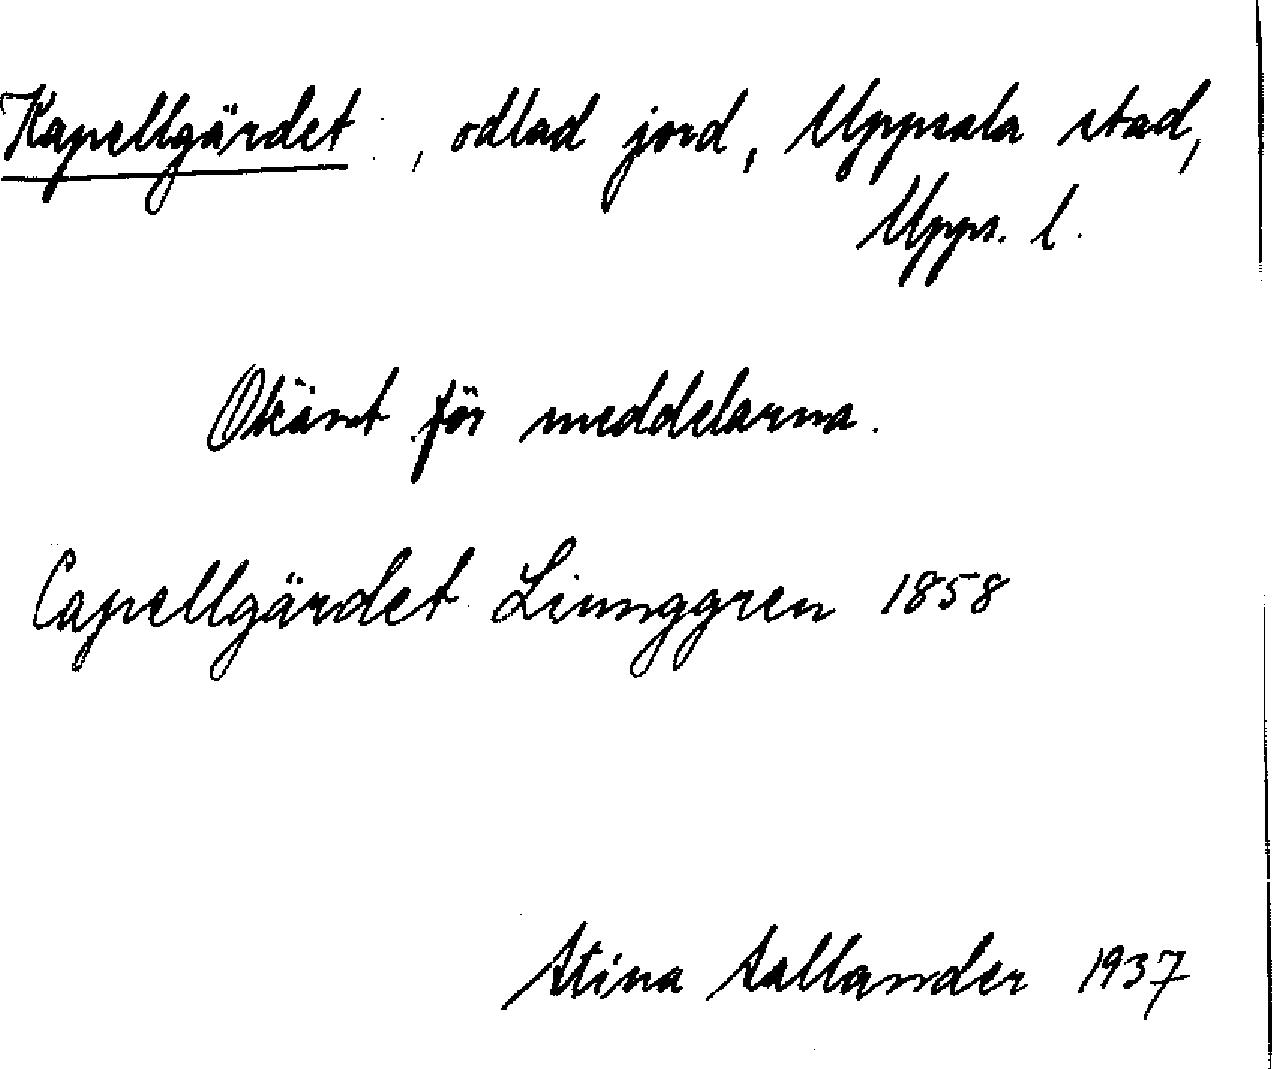 Kapellgärdet, odlad jord, Uppsala stad,
Upps. l.
Okänt för meddelarna.
Capellgärdet Linnggren 1858
Stina Sallander 1937